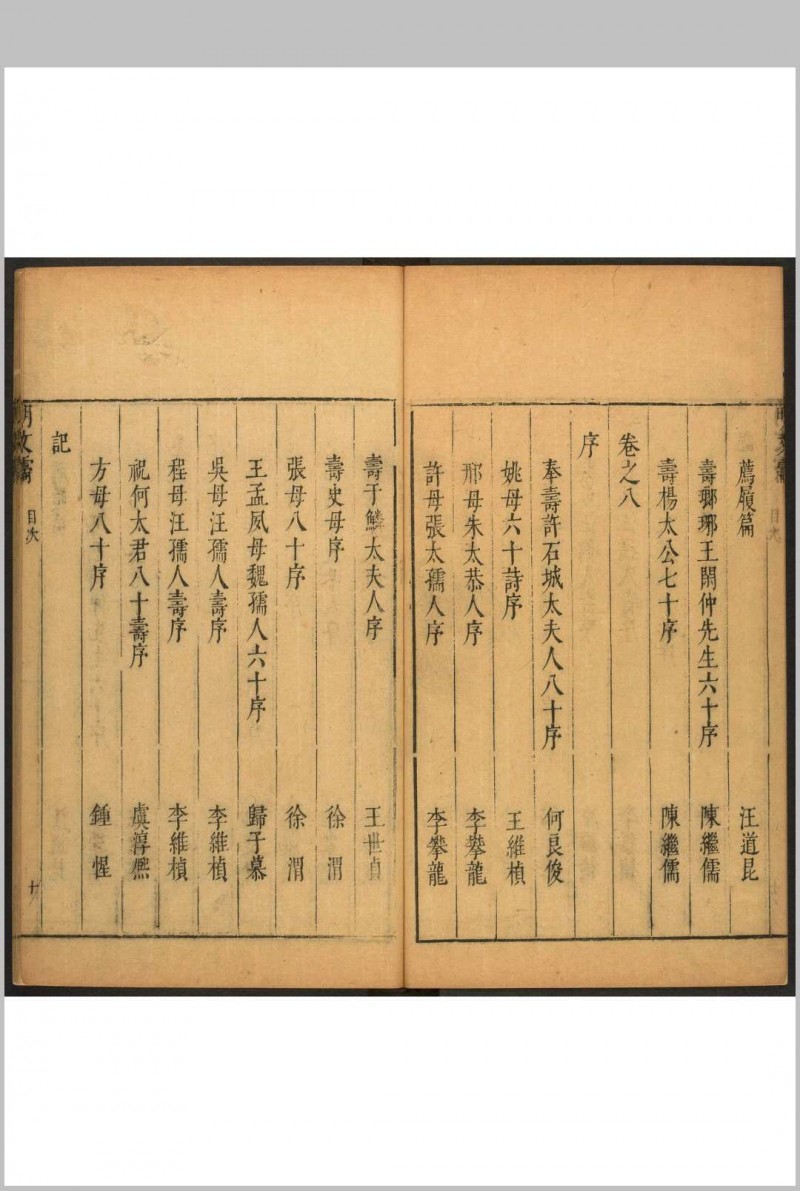 薦履篇 汪道昆
壽瑯琊王閑仲先生六十序 陳繼儒
壽楊太公七十序 陳繼儒
卷之八
序
奉壽許石城太夫人八十序 何良俊
姚母六十詩序 王維楨
邢母朱太恭人序 李攀龍
許母張太孺人序 李攀龍
壽于鱗太夫人序 王世貞
壽史母序 徐渭
張母八十序 徐渭
王孟夙母魏孺人六十序 歸子慕
吳母汪孺人壽序 李維楨
程母汪孺人壽序 李維楨
祝何太君八十壽序 虞淳熈
方母八十序 鍾惺
記
明文霱 目次 十